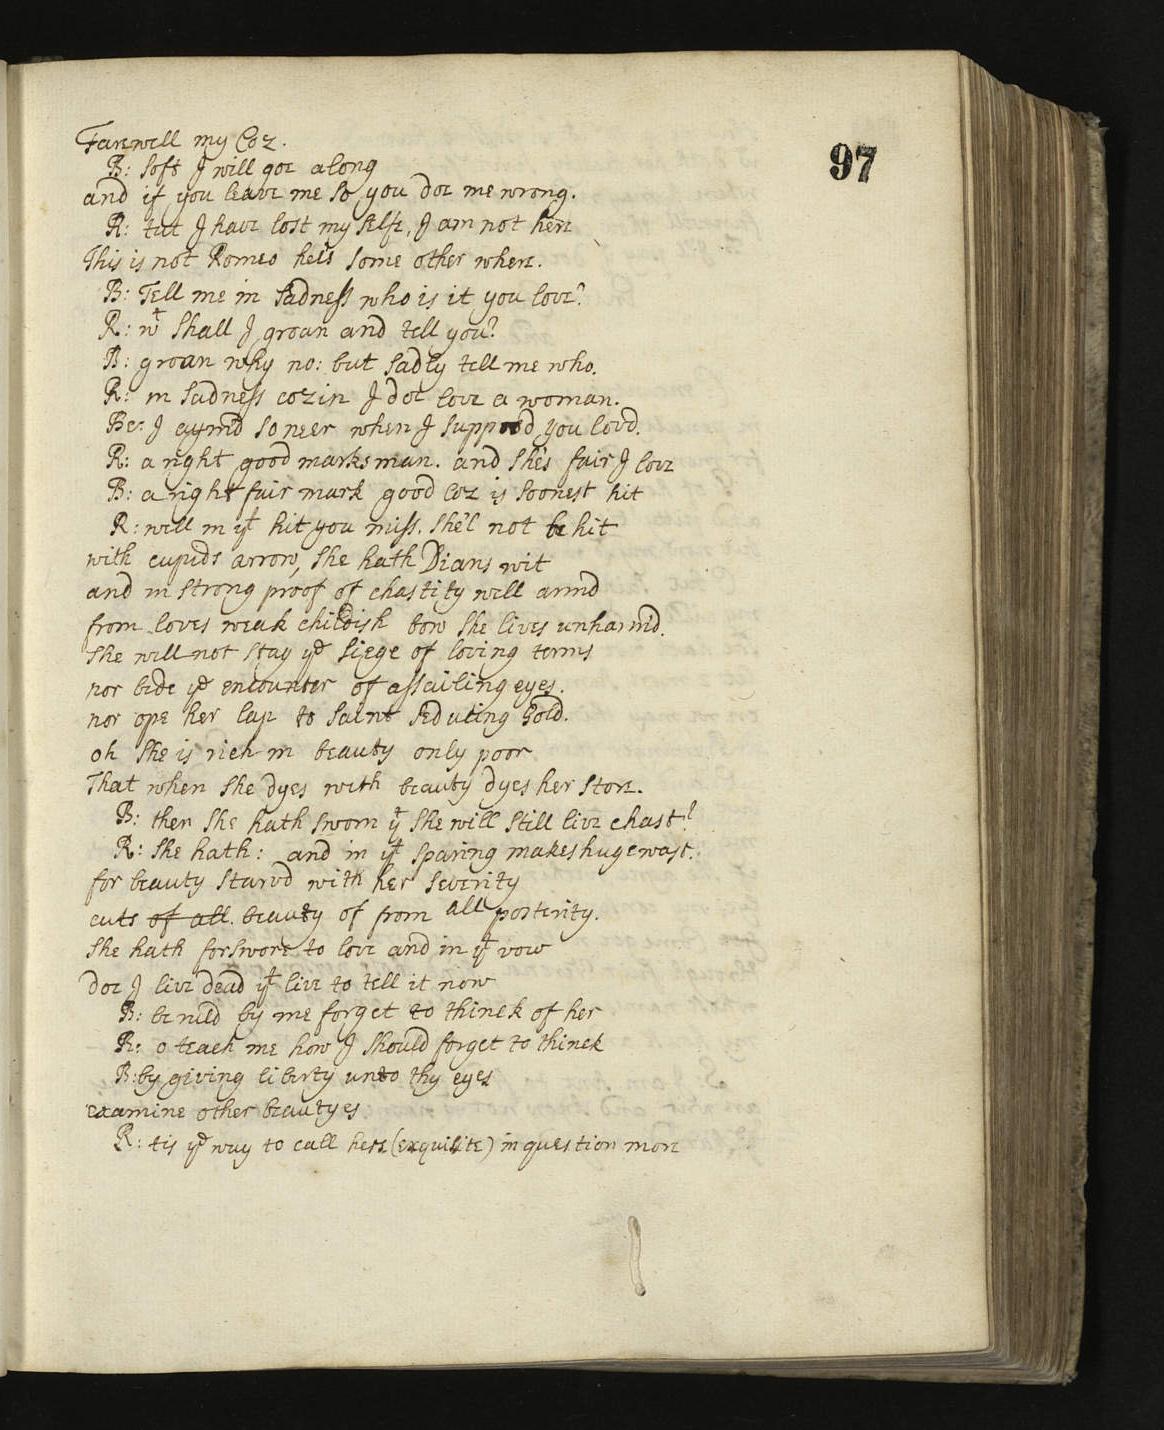 Farewell my Coz.
97
B: soft I will goe along
and if you leave me so you doe me wrong.
R: tut I have lost my selfe, I am not here
This is not Romeo he's some other where.
B: Tell me in sadness who is it you love?
R: wt shall I groan and tell you?
B: groan why no: but sadly tell me who.
R: in sadness cozin I doe love a woman.
Be: I aym'd so neer when I suppos'd you lov'd.
R: a right good marksman. and she's fair I love
B: a right fair mark good Coz is soonest hit
R: well in yt hit you miss. she'l not be hit
with cupids arrow, she hath Dians wit
and in strong proof of chastity well arm'd
from loves weak childish bow she lives unharm'd.
she will not stay ye siege of loving terms
nor bide ye encounter of assailing eyes.
nor ope her lap to saint seducing Gold.
oh she is rich in beauty only poor
That when she dyes with beauty dyes her store.
B: then she hath sworn yt she will still live chast?
R: she hath: and in yt sparing makes huge wast.
for beauty starv'd with her severity
cuts of all. beauty of from all posterity.
she hath forswore to love and in yt vow
doe I live dead yt live to tell it now
B: be ruled by me forget to thinck of her
R: o teach me how I should forget to thinck
B: by giving liberty unto thy eyes
examine other beautyes
R: tis ye way to call hers (exquisite) in question more